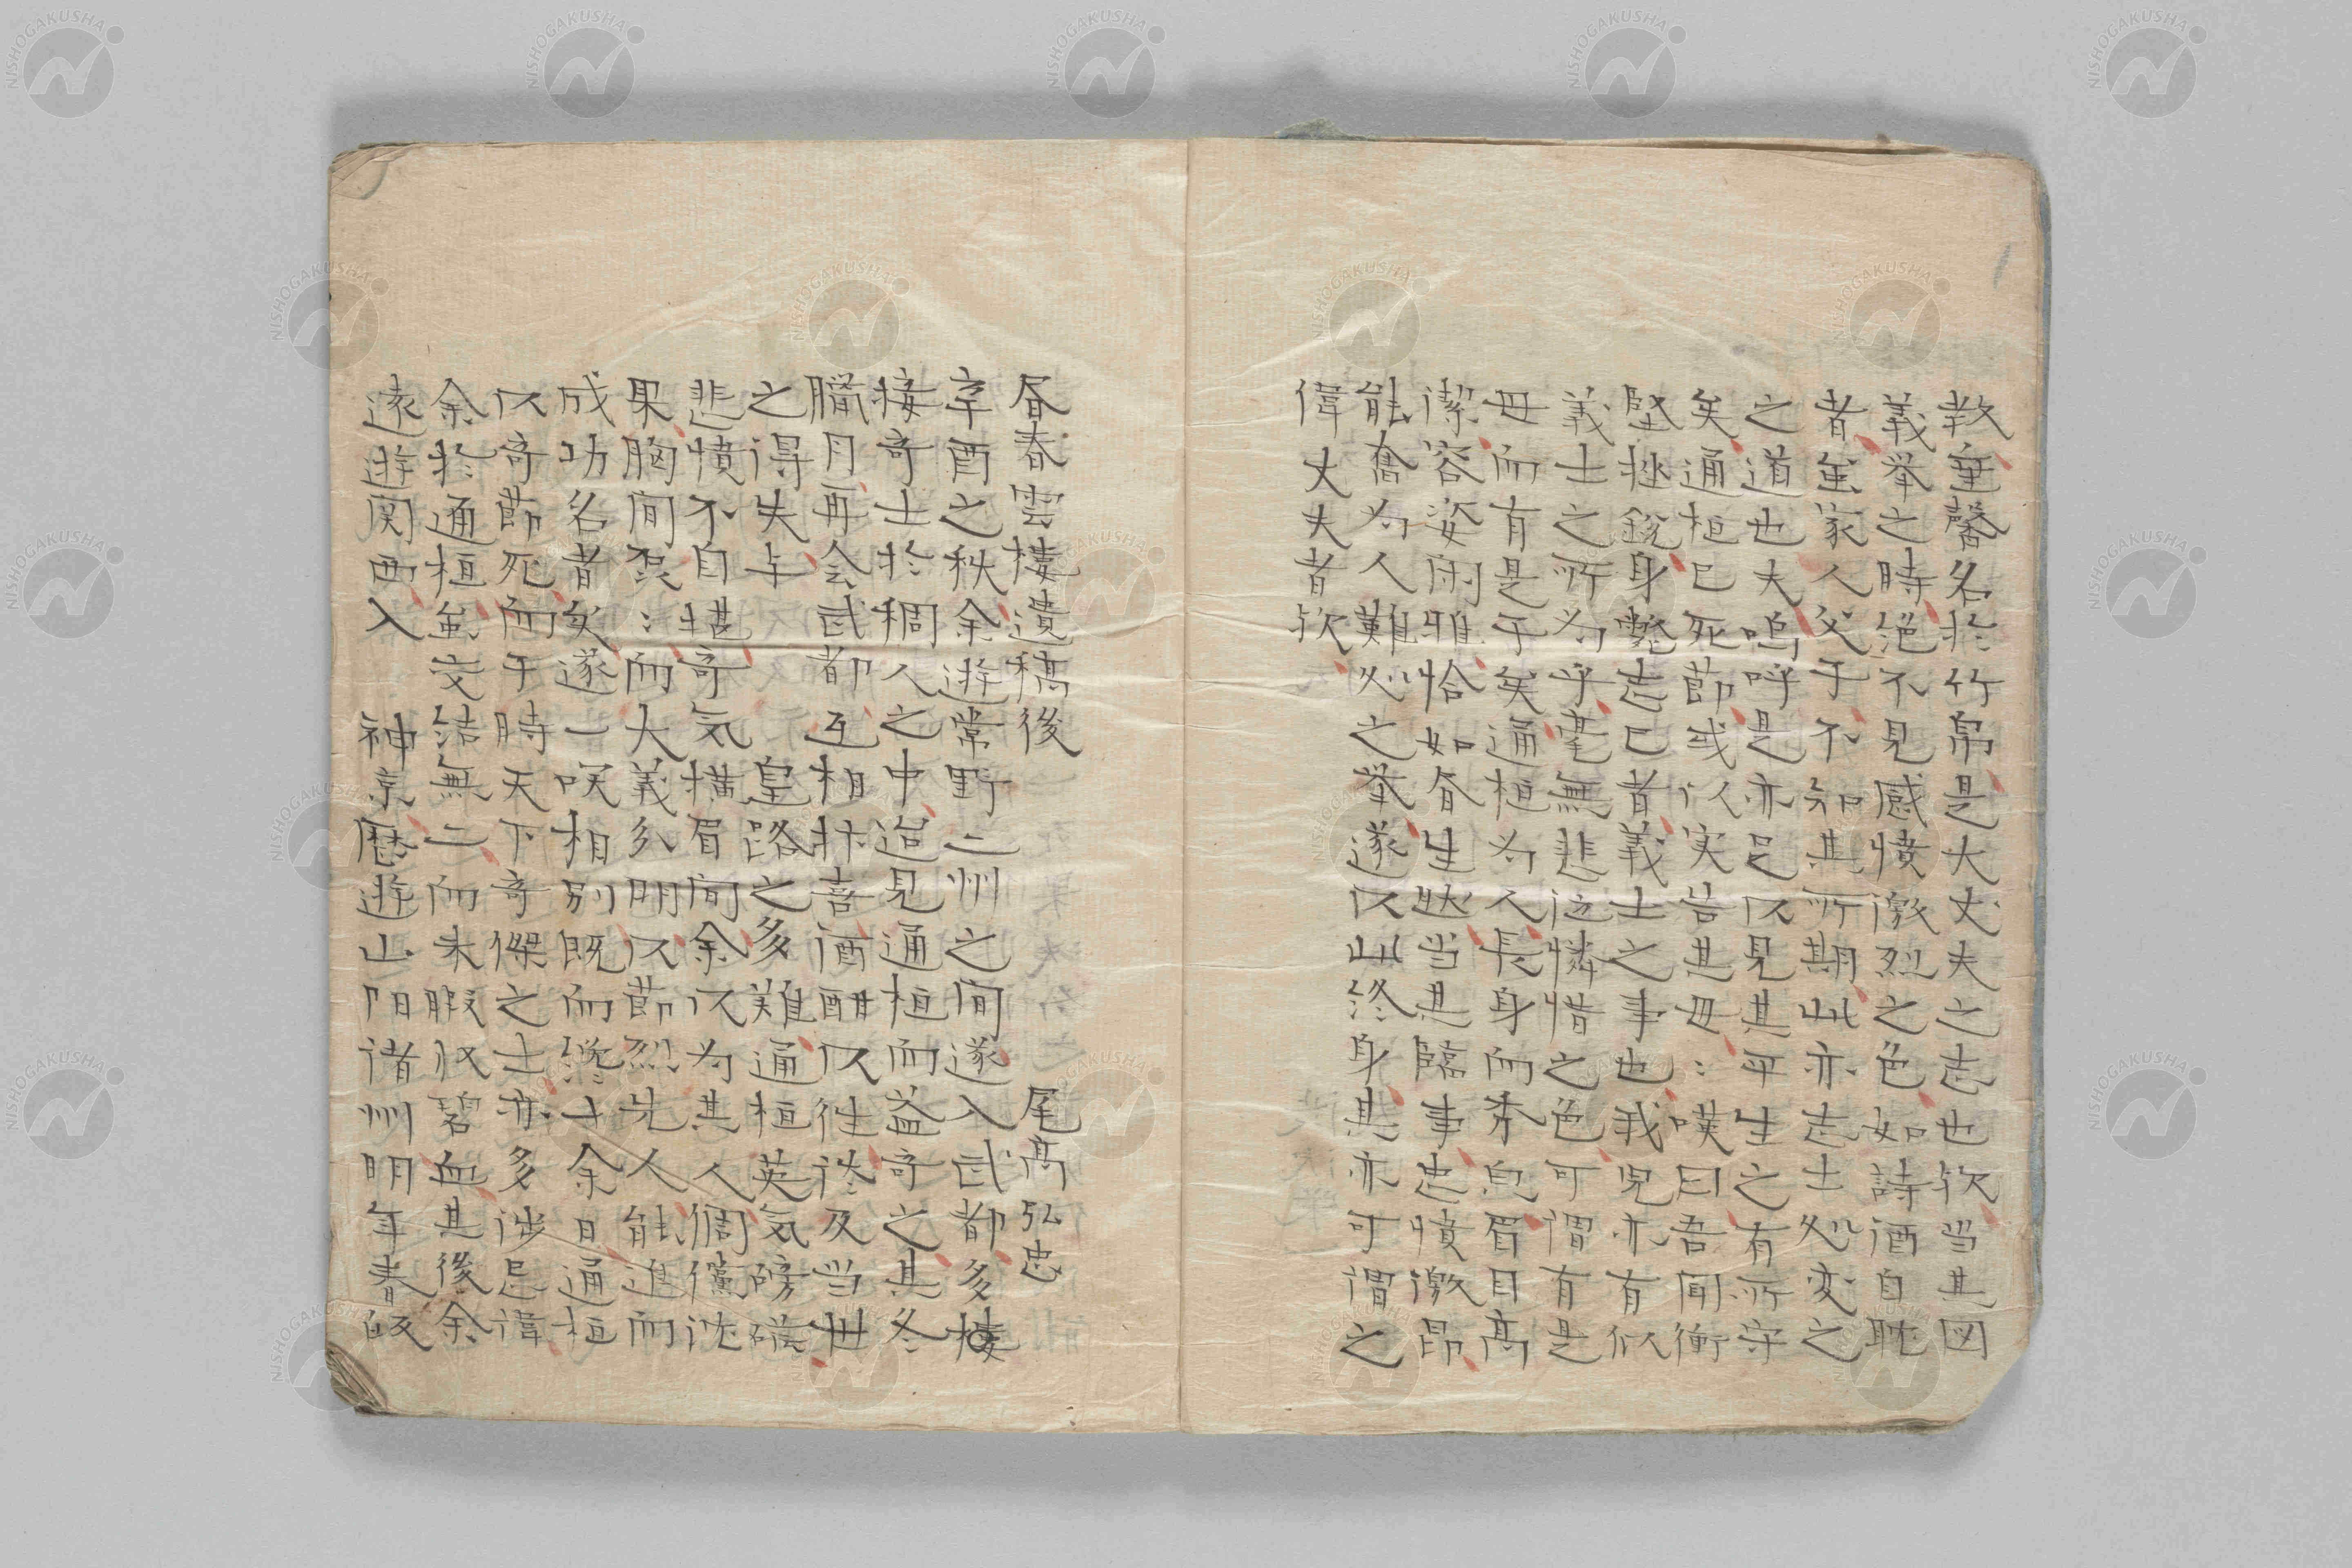 教垂馨名於竹帛是大丈夫之志也欤当其図
義挙之時絶不見感憤激烈之色如詩酒自耽
者虽家人父子不知其所期此亦志士処変之
之道也夫嗚呼是亦足以見其平生之有所守
矣通桓已死節或以实告其母〻嘆曰吾聞衝
堅挫鋭身斃志已者義士之事也我児亦有似
義士之所為乎毫無悲泣憐惜之色可謂有是
母而有是子矣通桓為人長身而秀皃眉目高
潔容姿閑雅恰如昏生然当其臨事忠憤激昂
能奮為人難処之挙遂以此終身其亦可謂之
偉丈夫者欤
昏春雲楼遺稿後 尾高弘忠
辛酉之秋余遊常野二州之間遂入武都多接
接奇士於稠人之中迨見通桓而益奇之其冬
臘月再会武都互相抃喜酒酣以往談及当世
之得失与 皇路之多難通桓英気磅礴
悲憤不自堪奇気横眉間余以為其人倜儻沈
果胸間裂〻而大義分明以節烈先人能進而
成功名者矣遂一咲相別既而纔十余日通桓
以奇節死而于時天下奇傑之士亦多渉忌諱
余於通桓虽交結無二而未暇収碧血其後余
遠遊関西入 神京歴遊山陽諸州明年春皈
NISHOGAKUSHA